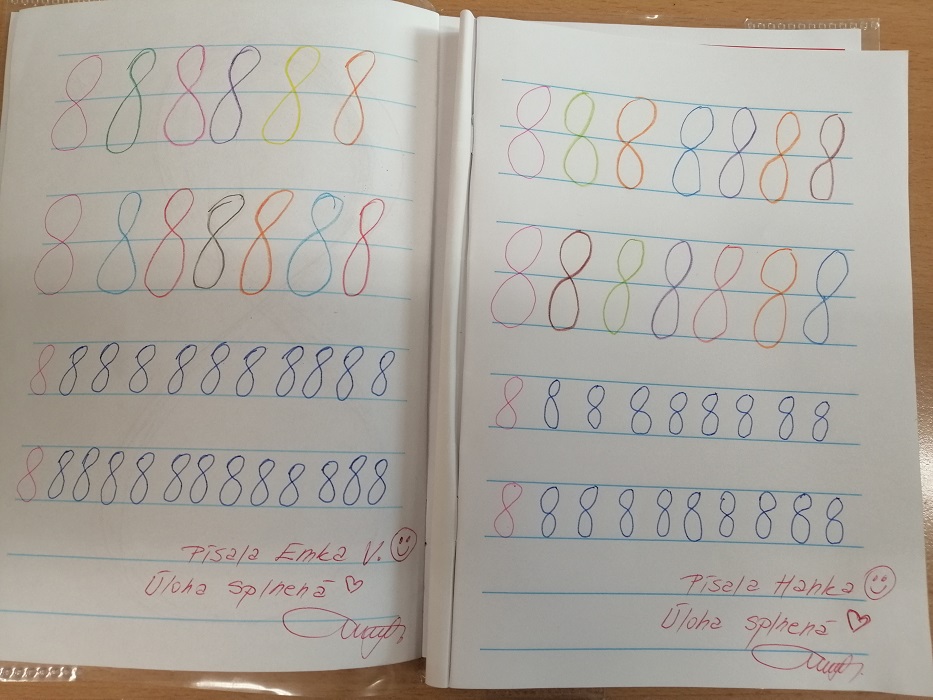 8 8 8 8 8 8
8 8 8 8 8 8 8
8 8 8 8 8 8 8 8 8 8 8
8 8 8 8 8 8 8 8 8 8 8 8 8
Písala Emka V.
Úloha splnená
8 8 8 8 8 8 8
8 8 8 8 8 8 8
8 8 8 8 8 8 8 8 8
8 8 8 8 8 8 8 8 8 8
Písala Hanka
Úloha splnená